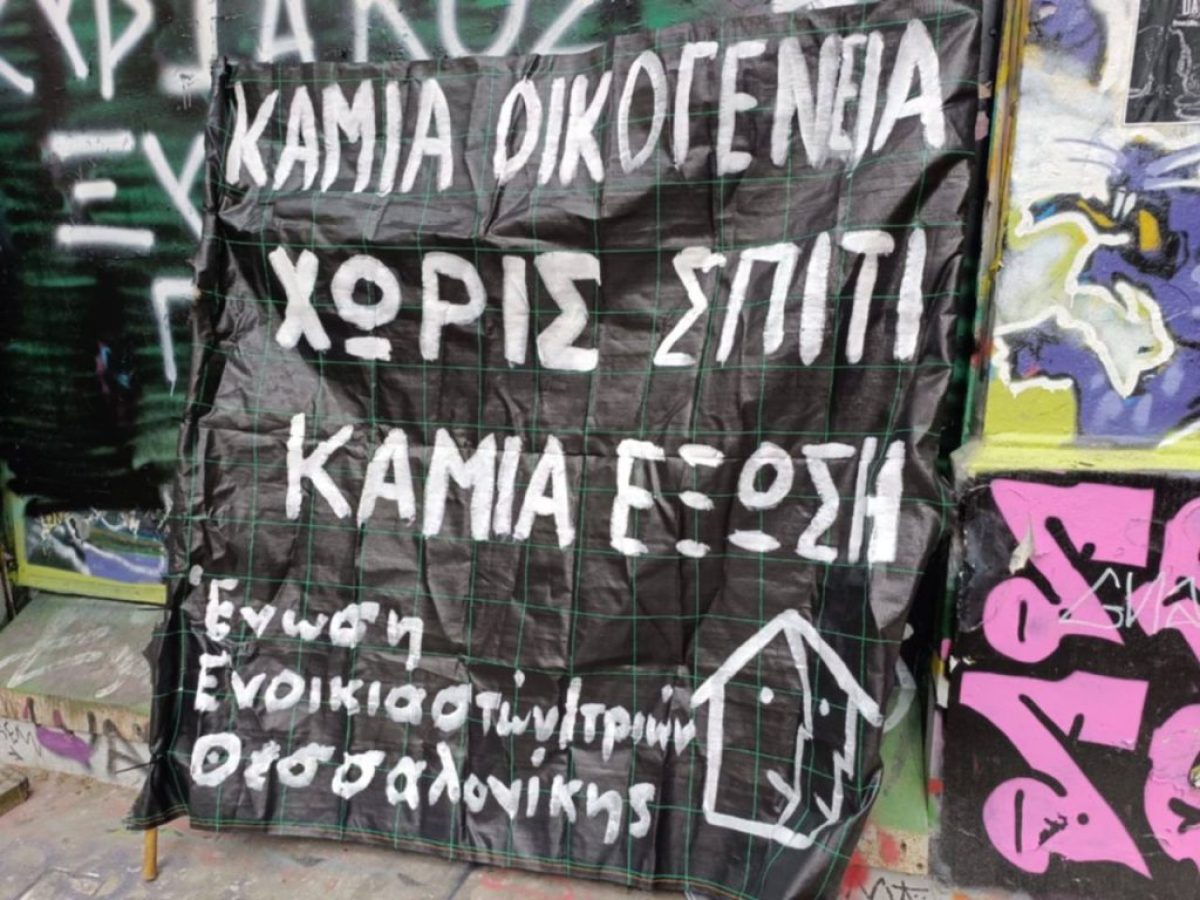 ΚΑΜΙΑ ΟΙΚΟΓΕΝΕΙΑ
ΧΩΡΙΣ ΣΠΙΤΙ
ΚΑΜΙΑ ΕΞΩΣΗ
Ένωση
Ενοικιαστών/τριών
Θεσσαλονίκης